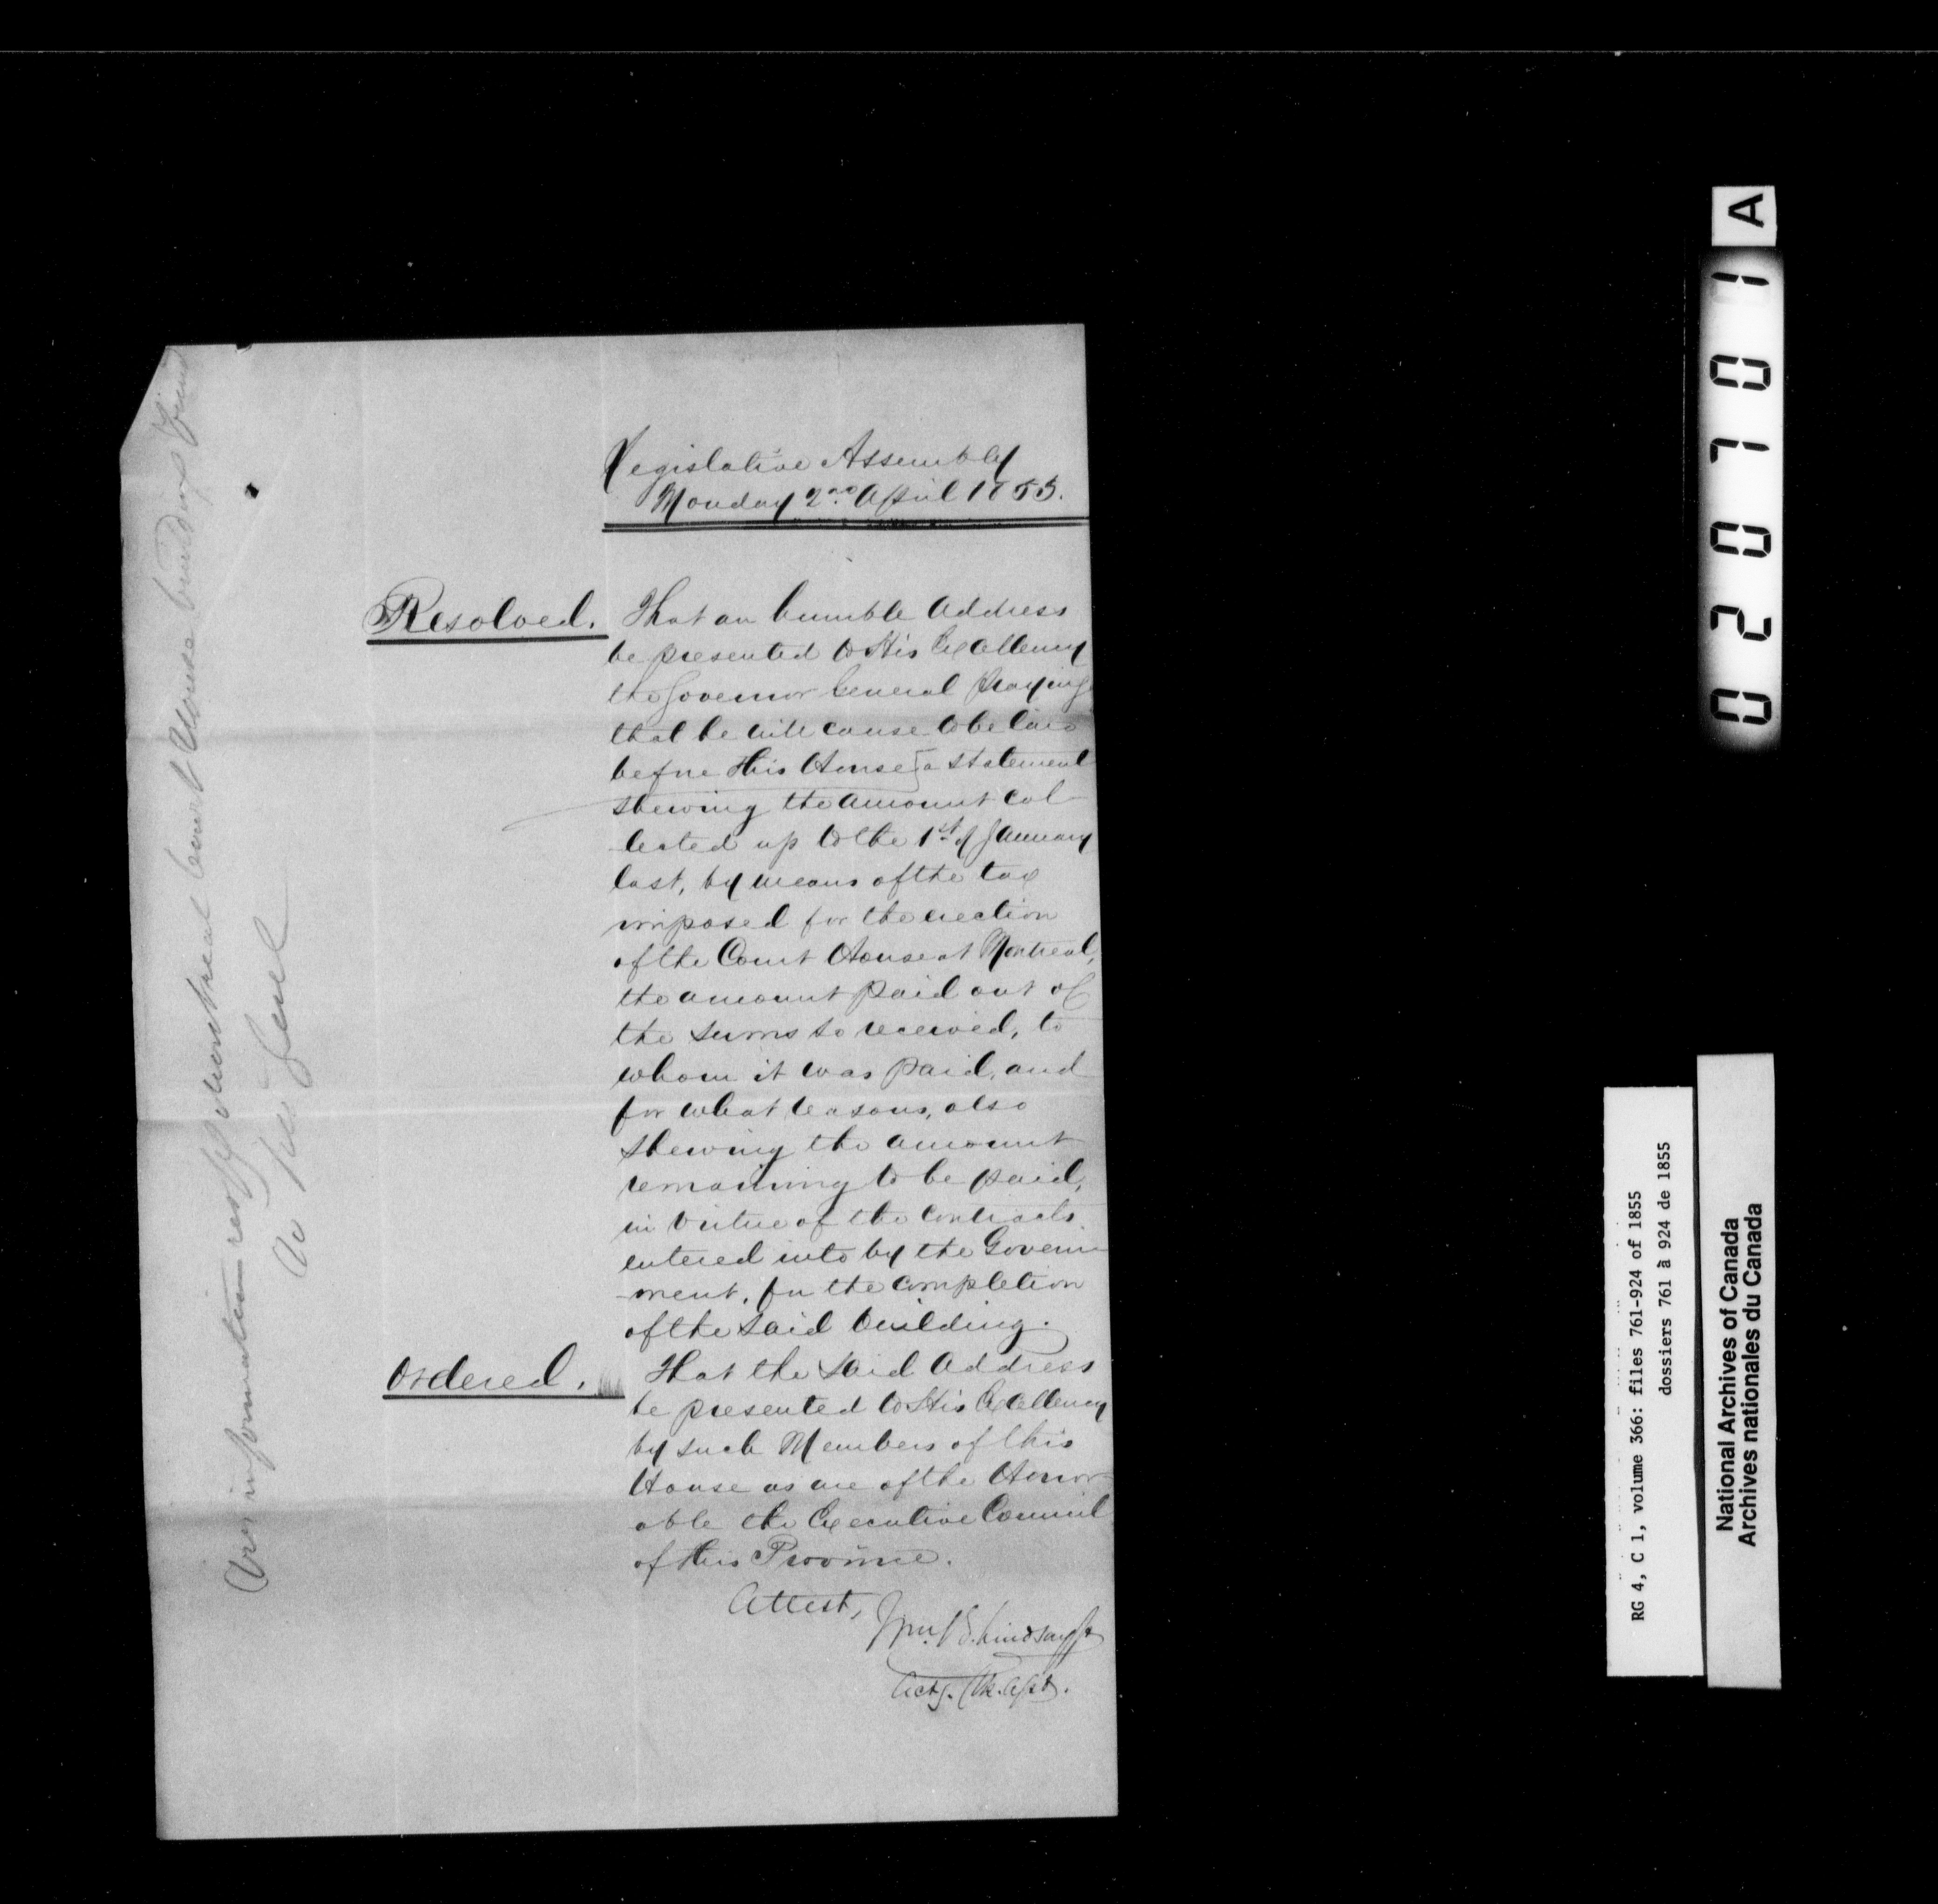 Legislative Assembly
Monday 2nd April 1855.
Resolved. That an humble Address
be presented to His Excellency
the Governor General praying
that he will cause to be laid
before this House [a statement
shewing the amount col-
lected up to the 1st of January
last, by means of the tax
imposed for the erection
of the Court House at Montreal,
the amount paid out of
the sums so received, to
whom it was paid, and
for what reasons, also
shewing the amount
remaining to be paid,
in virtue of the contracts
entered into by the Govern-
ment, for the completion
of the said building.
Ordered. That the said Address
be presented to His Excellency
by such Members of this
House as are of the Honor-
able the Executive Council
of this Province.
Attest,
Wm. B. Lindsay Jr
Actg. Clk. Assy.
information resp Montreal Court House building Fund
A
020701
RG 4, C 1, volume 366: files 761-924 of 1855
dossiers 761 à 924 de 1855
National Archives of Canada
Archives nationales du Canada